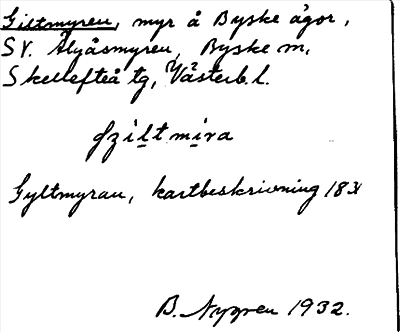 Giltmyren, myr å Byske ägor,
SV. Älgåsmyren, Byske sn,
Skellefteå tg, Västerb. l.
Gyltmyran, kartbeskrivning 18
B. Nygren 1932.